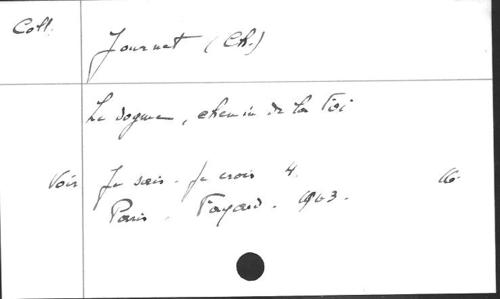 Coll. Journet (Ch.)
Le dogme, chemin de la Foi
Voir Je sais - Je crois 4. 16.
Paris. Fayard. 1963.